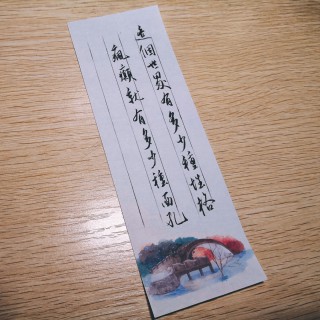 這個世界有多少種性格
瘋癲就有多少種面孔